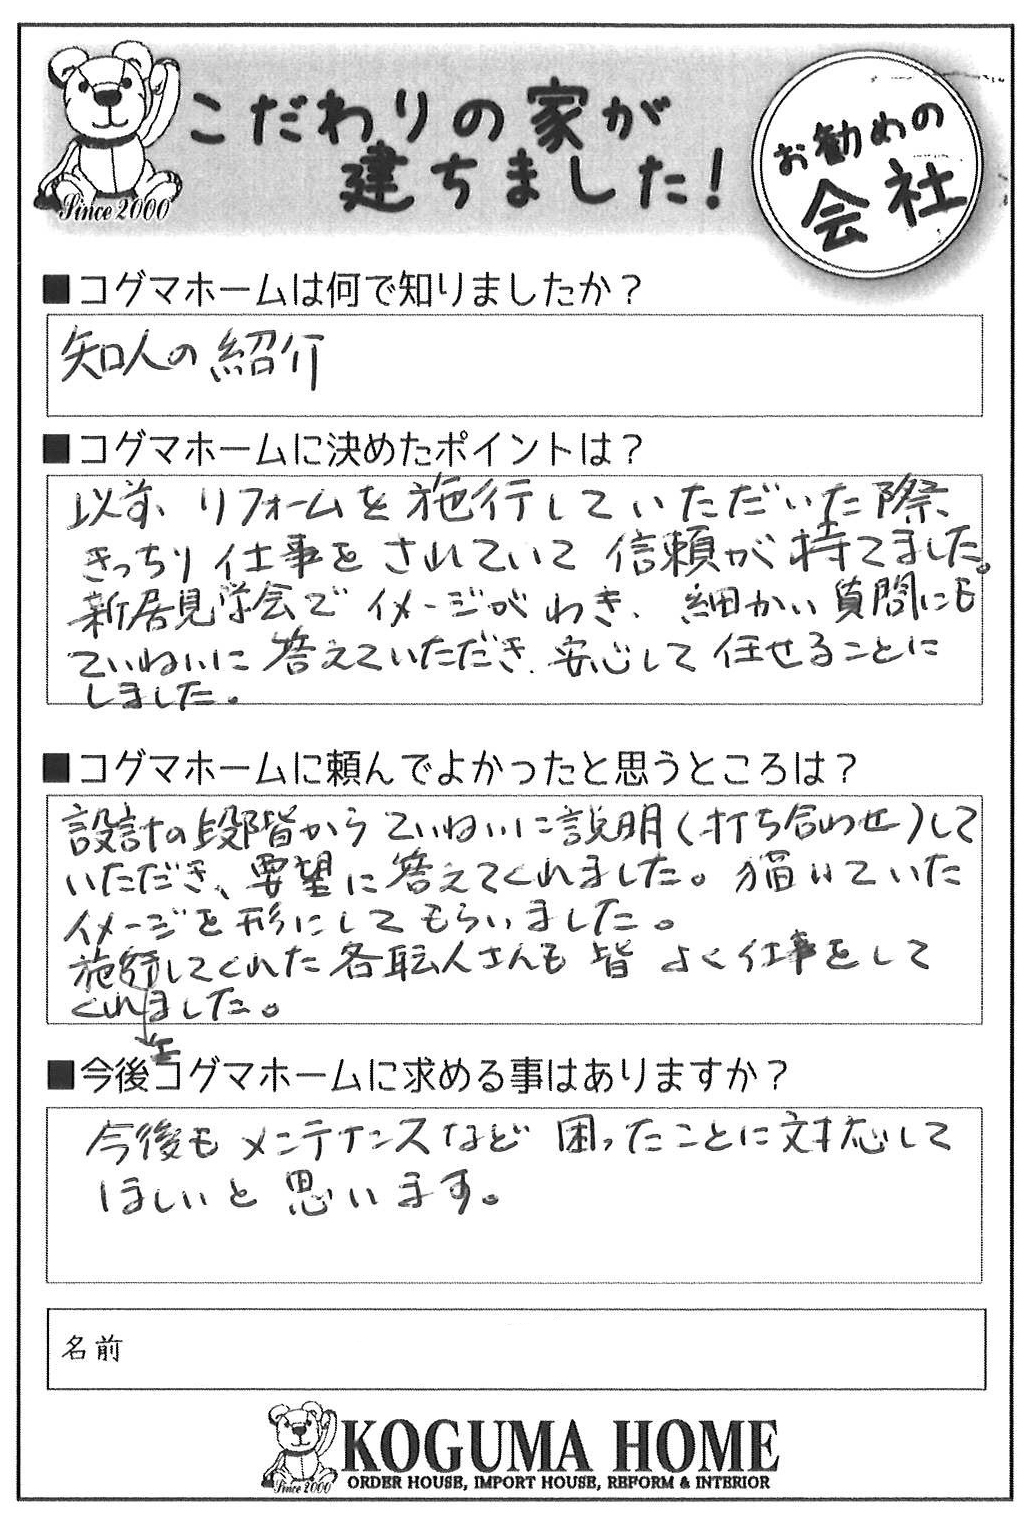 こだわりの家が
建ちました!
お勧めの
会社
Since 2000
■コグマホームは何で知りましたか?
知人の紹介
■コグマホームに決めたポイントは?
以前、リフォームを施行していただいた際、
きっちり仕事をされていて信頼が持てました。
新居見学会でイメージがわき、細かい質問にも
ていねいに答えていただき、安心して任せることに
しました。
■コグマホームに頼んでよかったと思うところは?
設計の段階からていねいに説明(打ち合わせ)して
いただき、要望に答えてくれました。描いていた
イメージを形にしてもらいました。
施行してくれた各職人さんも皆よく仕事をして
くれました。
工
■今後コグマホームに求める事はありますか?
今後もメンテナンスなど困ったことに対応して
ほしいと思います。
名前
Since 2000
KOGUMA HOME
ORDER HOUSE, IMPORT HOUSE, REFORM & INTERIOR